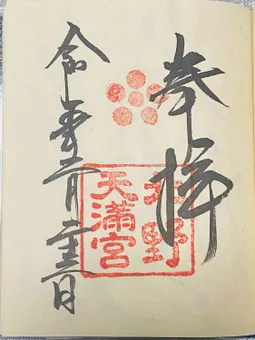 奉拝
北野
天満宮
令和年二月二十三日